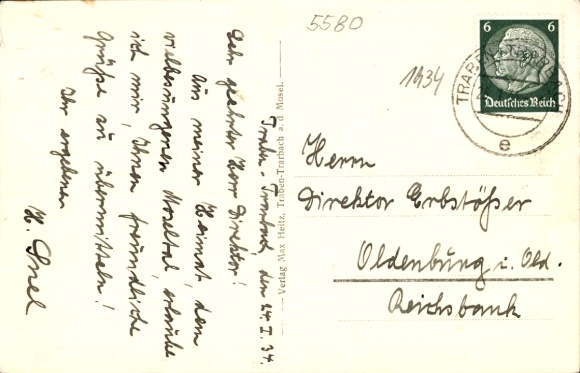 Traben-Trarbach, den 24. I. 34.
Sehr geehrter Herr Direktor!
Aus meiner Heimat, dem
vielbesungenen Moseltal, erlaube
ich mir, Ihnen freundliche
Grüße zu übermitteln!
Ihr ergebener
Verlag Max Heitz, Traben-Trarbach a. d. Mosel.
5580
1934
6 6
Deutsches Reich
TRABEN-TRARBACH
e
Herrn
Direktor Erbstößer
Oldenburg i. Old.
Reichsbank